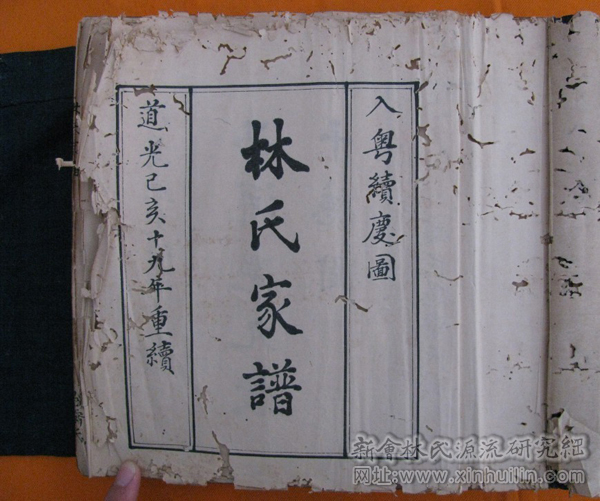 入粤續慶圖
林氏家譜
道光己亥十九年重續
新會林氏源流研究網
网址:www.xinhuilin.com